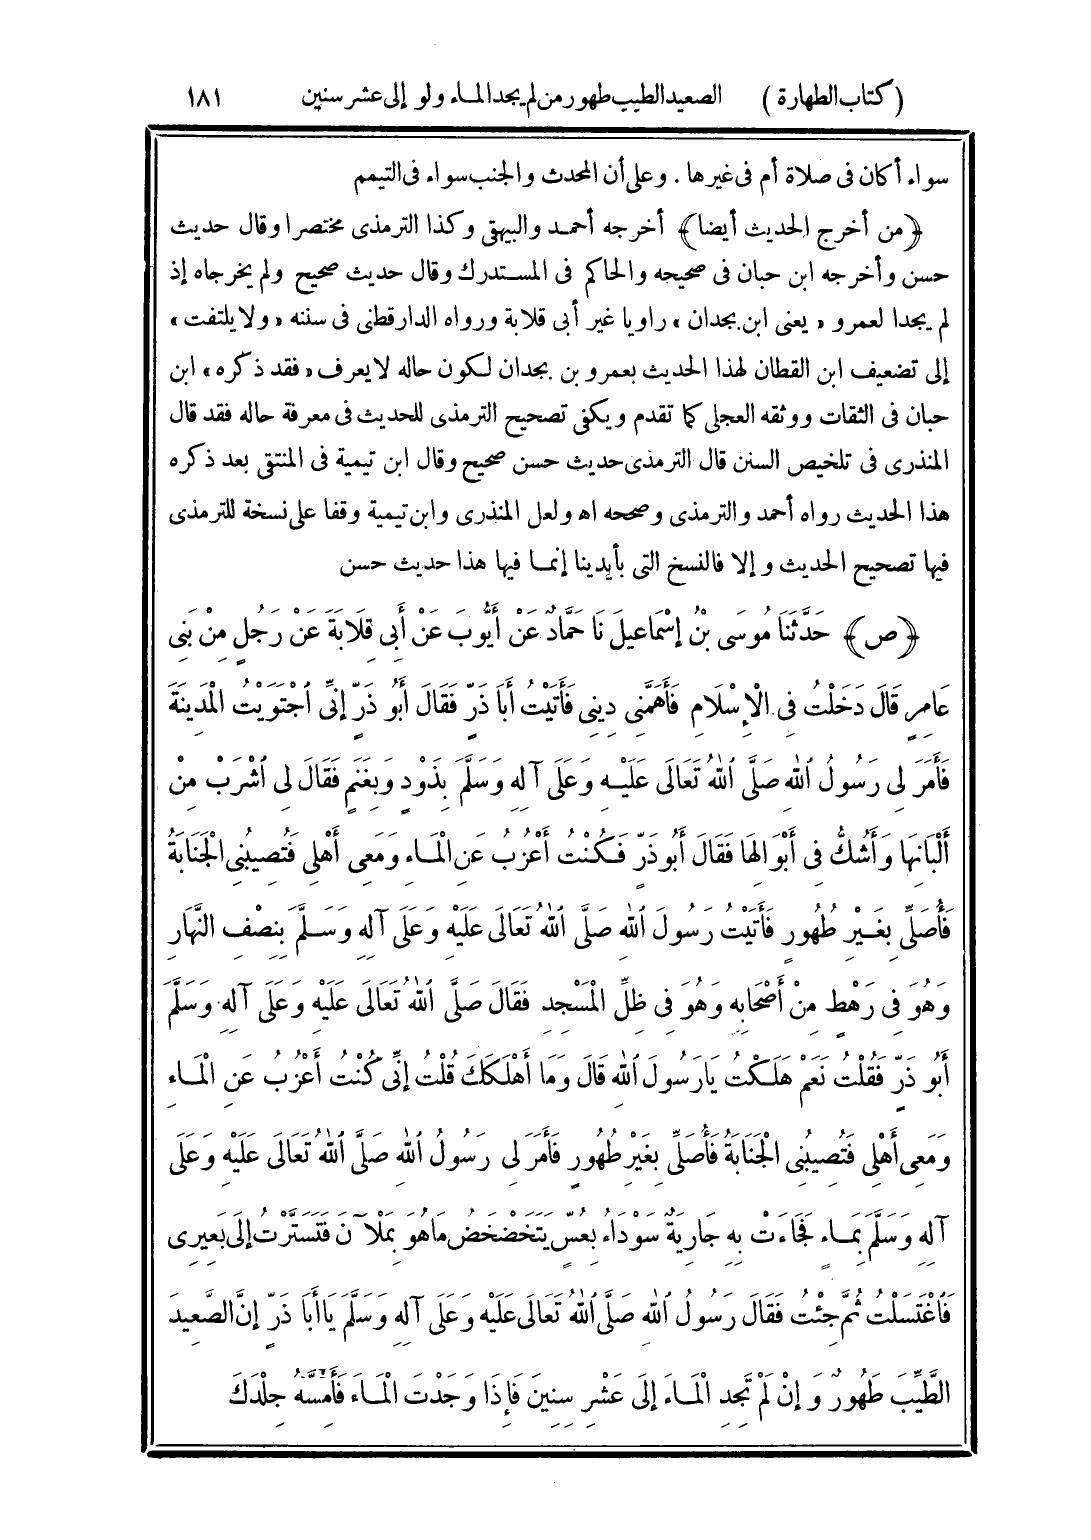 (كتاب الطهارة) الصعيد الطيب طهور من لم يجد الماء ولو إلى عشر سنين ١٨١
سواء أكان فى صلاة أم فى غيرها . وعلى أن المحدث والجنب سواء فى التيمم
﴿من أخرج الحديث أيضا﴾ أخرجه أحمد والبيهقى وكذا الترمذى مختصرا وقال حديث
حسن وأخرجه ابن حبان فى صحيحه والحاكم فى المستدرك وقال حديث صحيح ولم يخرجاه إذ
لم يجدا لعمرو «يعنى ابن بجدان» راويا غير أبى قلابة ورواه الدارقطنى فى سننه «ولا يلتفت»
إلى تضعيف ابن القطان لهذا الحديث بعمرو بن بجدان لكون حاله لا يعرف «فقد ذكره» ابن
حبان فى الثقات ووثقه العجلى كما تقدم ويكفى تصحيح الترمذى للحديث فى معرفة حاله فقد قال
المنذرى فى تلخيص السنن قال الترمذى حديث حسن صحيح وقال ابن تيمية فى المنتقى بعد ذكره
هذا الحديث رواه أحمد والترمذى وصححه اه ولعل المنذرى وابن تيمية وقفا على نسخة للترمذى
فيها تصحيح الحديث وإلا فالنسخ التى بأيدينا إنما فيها هذا حديث حسن
﴿ص﴾ حَدَّثَنَا مُوسَى بْنُ إِسْمَاعِيلَ نَا حَمَّادٌ عَنْ أَيُّوبَ عَنْ أَبِى قِلَابَةَ عَنْ رَجُلٍ مِنْ بَنِى
عَامِرٍ قَالَ دَخَلْتُ فِى الْإِسْلَامِ فَأَهَمَّنِى دِينِى فَأَتَيْتُ أَبَا ذَرٍّ فَقَالَ أَبُو ذَرٍّ إِنِّى اجْتَوَيْتُ الْمَدِينَةَ
فَأَمَرَ لِى رَسُولُ اللهِ صَلَّى اللهُ تَعَالَى عَلَيْهِ وَعَلَى آلِهِ وَسَلَّمَ بِذَوْدٍ وَبِغَنَمٍ فَقَالَ لِى اشْرَبْ مِنْ
أَلْبَانِهَا وَأَشُكُّ فِى أَبْوَالِهَا فَقَالَ أَبُو ذَرٍّ فَكُنْتُ أَعْزُبُ عَنِ الْمَاءِ وَمَعِى أَهْلِى فَتُصِيبُنِى الْجَنَابَةُ
فَأُصَلِّى بِغَيْرِ طُهُورٍ فَأَتَيْتُ رَسُولَ اللهِ صَلَّى اللهُ تَعَالَى عَلَيْهِ وَعَلَى آلِهِ وَسَلَّمَ بِنِصْفِ النَّهَارِ
وَهُوَ فِى رَهْطٍ مِنْ أَصْحَابِهِ وَهُوَ فِى ظِلِّ الْمَسْجِدِ فَقَالَ صَلَّى اللهُ تَعَالَى عَلَيْهِ وَعَلَى آلِهِ وَسَلَّمَ
أَبُو ذَرٍّ فَقُلْتُ نَعَمْ هَلَكْتُ يَا رَسُولَ اللهِ قَالَ وَمَا أَهْلَكَكَ قُلْتُ إِنِّى كُنْتُ أَعْزُبُ عَنِ الْمَاءِ
وَمَعِى أَهْلِى فَتُصِيبُنِى الْجَنَابَةُ فَأُصَلِّى بِغَيْرِ طُهُورٍ فَأَمَرَ لِى رَسُولُ اللهِ صَلَّى اللهُ تَعَالَى عَلَيْهِ وَعَلَى
آلِهِ وَسَلَّمَ بِمَاءٍ فَجَاءَتْ بِهِ جَارِيَةٌ سَوْدَاءُ بِعُسٍّ يَتَخَضْخَضُ مَا هُوَ بِمَلْآنَ فَتَسَتَّرْتُ إِلَى بَعِيرِى
فَاغْتَسَلْتُ ثُمَّ جِئْتُ فَقَالَ رَسُولُ اللهِ صَلَّى اللهُ تَعَالَى عَلَيْهِ وَعَلَى آلِهِ وَسَلَّمَ يَا أَبَا ذَرٍّ إِنَّ الصَّعِيدَ
الطَّيِّبَ طَهُورٌ وَإِنْ لَمْ تَجِدِ الْمَاءَ إِلَى عَشْرِ سِنِينَ فَإِذَا وَجَدْتَ الْمَاءَ فَأَمِسَّهُ جِلْدَكَ